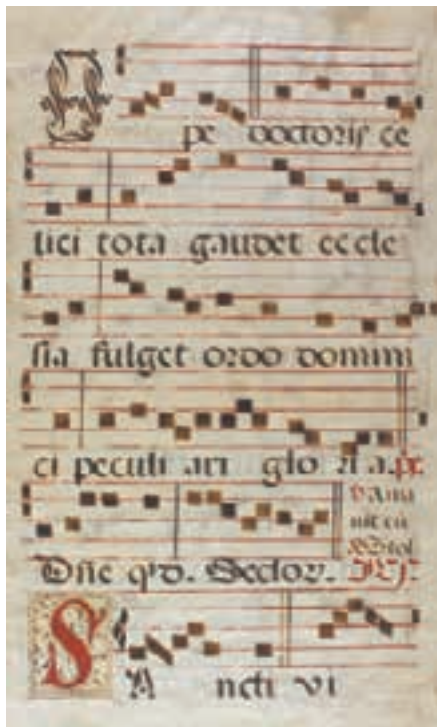 Ope doctoris ce
lici tota gaudet eccle
sia fulget ordo domini
ci peculi ari glo ri a. ps.
Dne q̃d. Seclor.
V Ama
uit eu
SAncti vi